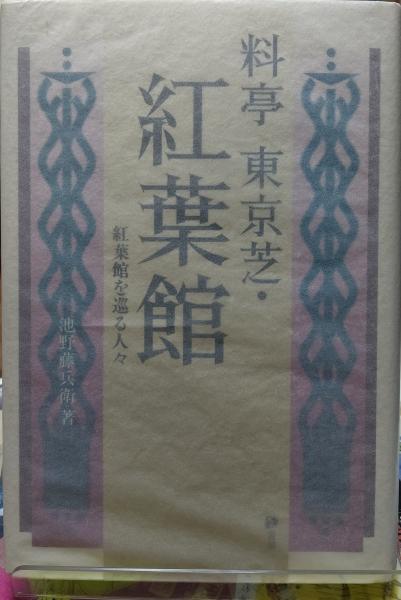 料亭 東京芝・
紅葉館
紅葉館を巡る人々
池野藤兵衛 著